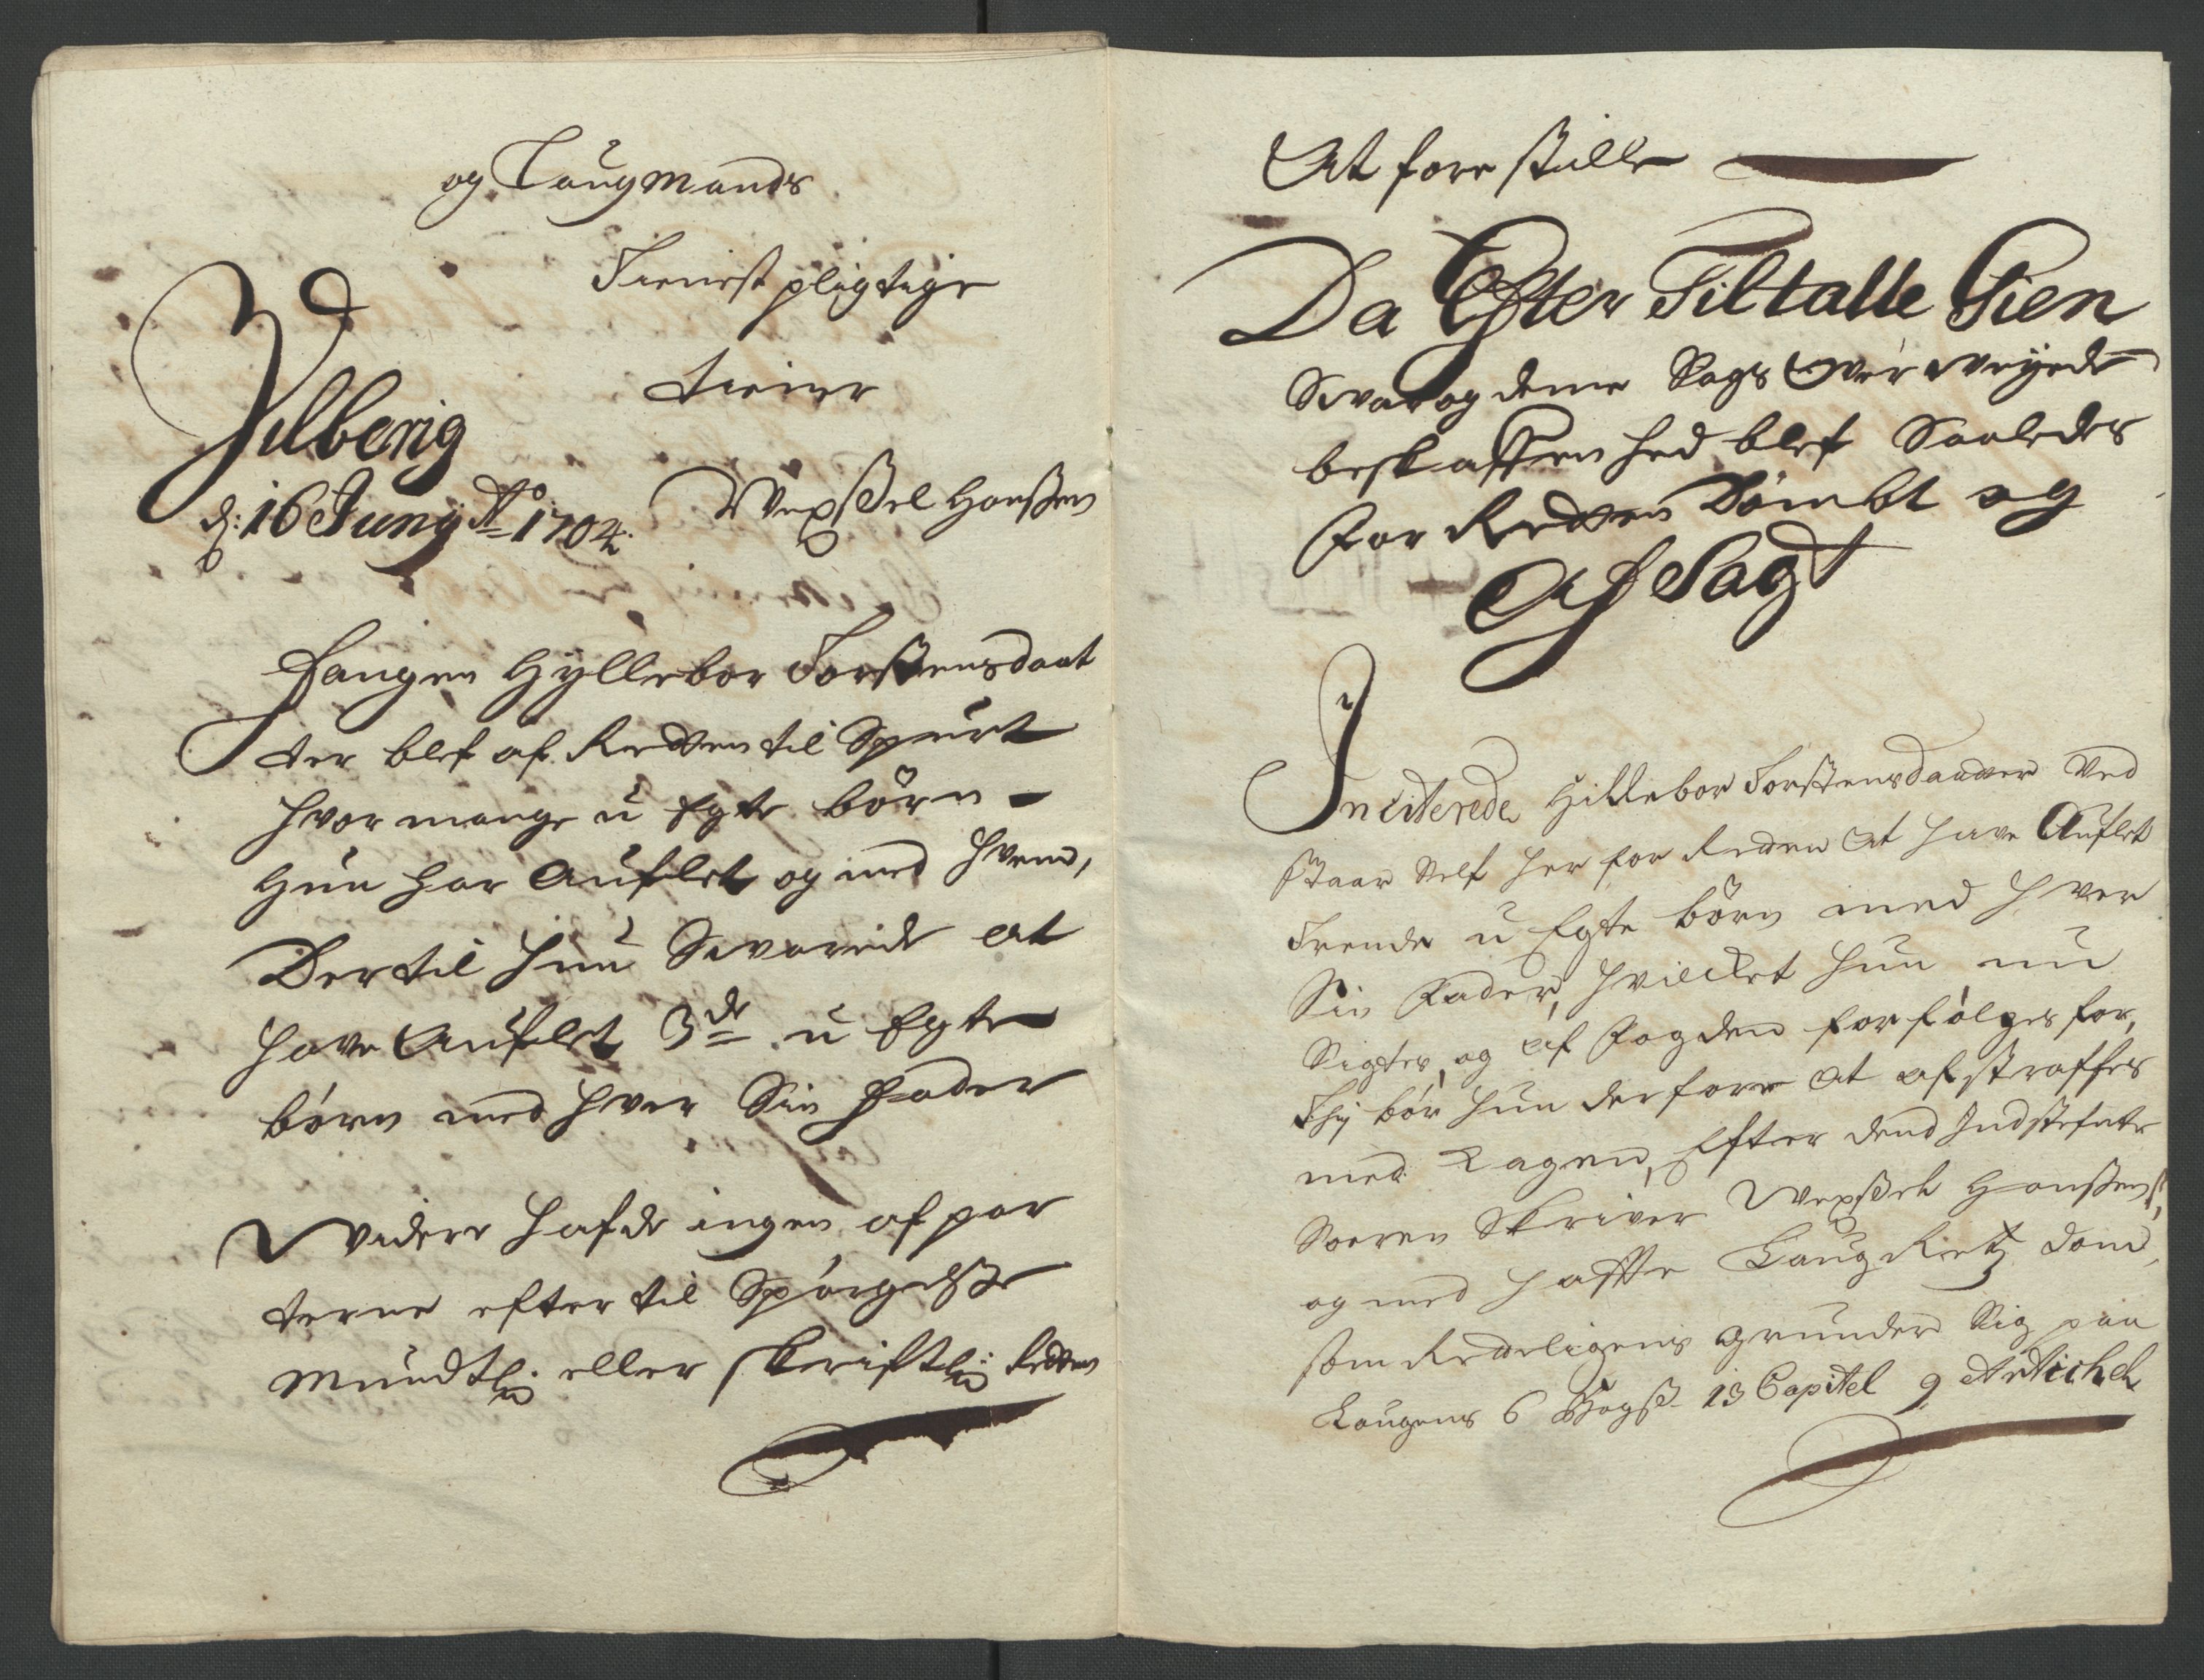 og Laugmands
Tienist pligtige
tiener
Julberig
d: 16 Juny Ao 1704.
Wexssel Hanssen
Fangen Hyllebor Torstensdaat
ter blef af Retten til Spurt
hvor mange u Egte börn -
Hun har Auflet og med hvem,
Der til hun Svarede at
have Auflet 3de u Egte
börn med hver Sin Fader
Videre hafde ingen af par
terne efter til Spørgelsse
mundtlig eller skriftlig Retten
At fore stille
Da Efter Tiltalle Gien
Svar og denne Sags Over veyede
beskaffenhed blef Saaledes
For Retten Dömbt og
Af Sagt
Inciterede Hillebor Torstensdaatter Ved
staar Self her for Retten At have Auflet
Trende u Egte börn med hver
Sin Fader, hvilcket hun nu
Sigtes, og af Fogden forfølges for,
Thj bör hun derfore At afstraffes
med Lagen, Efter dend Indstefnte
Soeren Skriver Wexssel Hanssens,
og med hafte Laug Retz dom,
som Retteligens grunder Sig paa
Laugens 6 Bogs 13 Capitel 9 Artichel